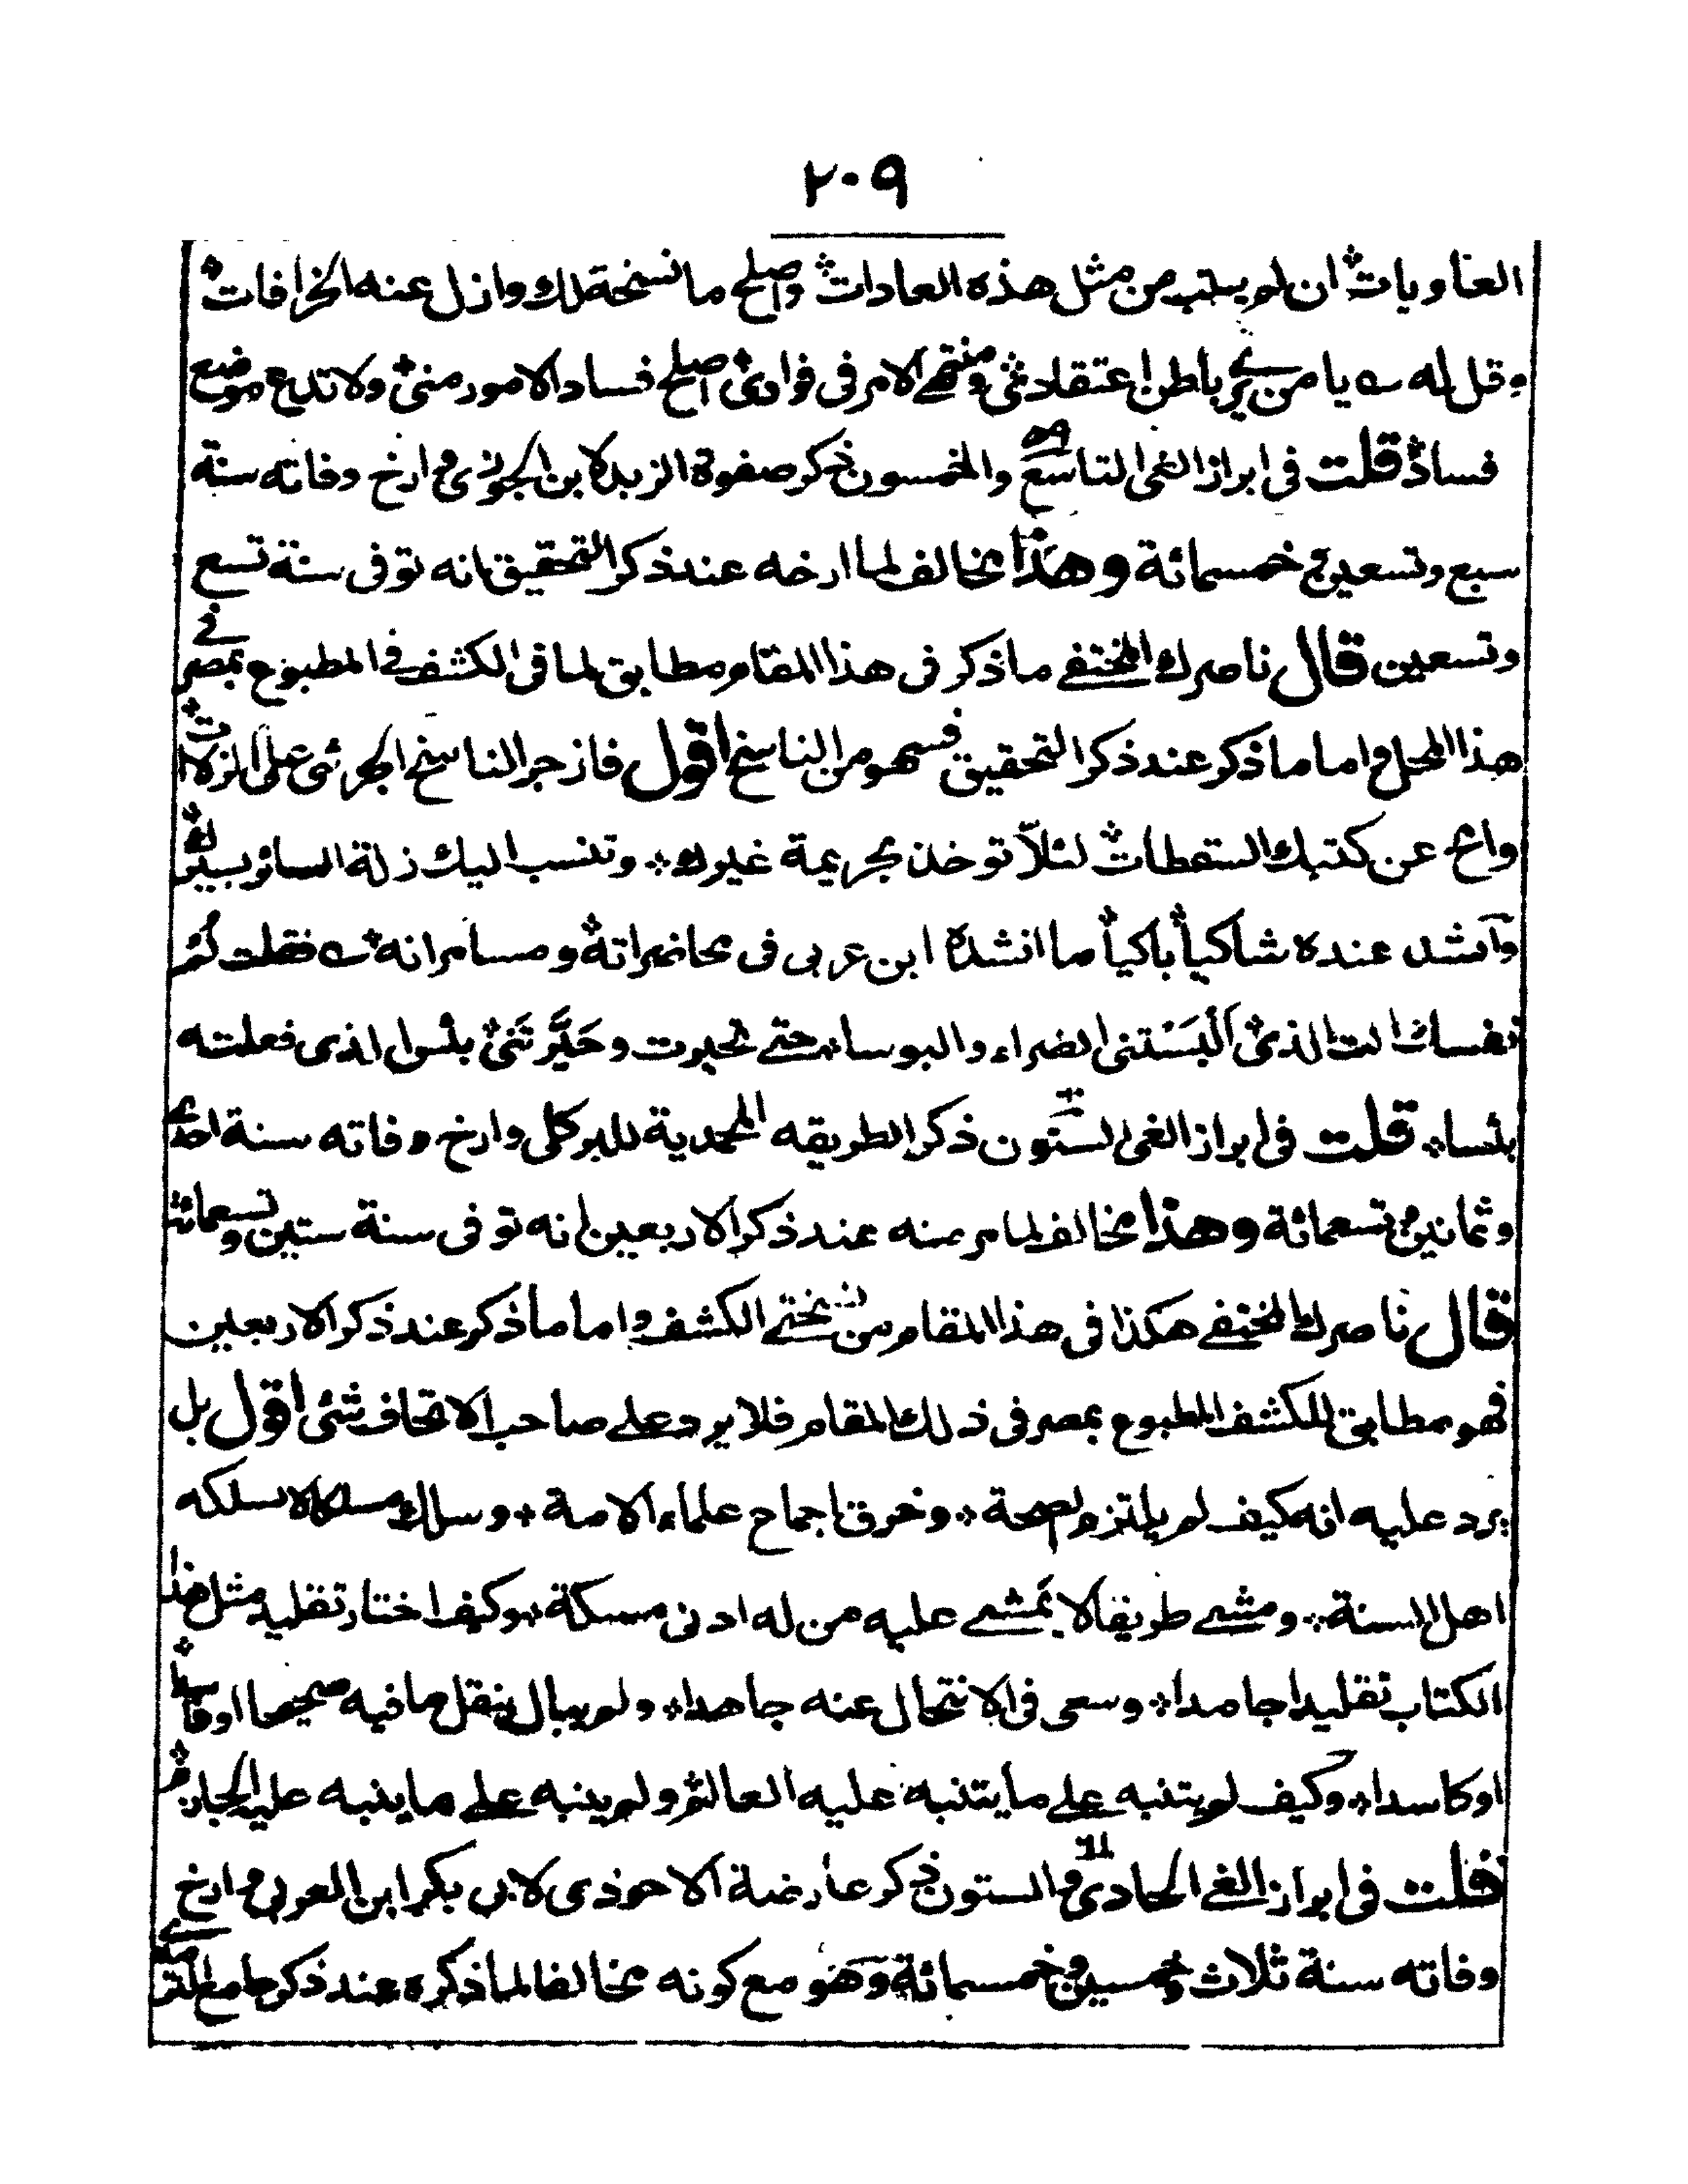 ٢٠٩
العاويات ان لم يتب من مثل هذه العادات واصلح ما نسخه لك وازل عنه الخرافات
وقل له يا من يرى باطن اعتقادى ومنتهى الامر فى فوادى اصلح فساد الامور منى ولا تدع موضع
فساد قلت فى ابراز الغى التاسع والخمسون ذكر صفوة الزبد لابن الجوزى وارخ وفاته سنة
سبع وتسعين وخمسمائة وهذا مخالف لما ارخه عند ذكر التحقيق انه توفى سنة تسع
وتسعين قال ناصرك المختفى ما ذكر فى هذا المقام مطابق لما فى الكشف المطبوع بمصر فى
هذا المحل واما ما ذكر عند ذكر التحقيق فسهو من الناسخ اقول فازجر الناسخ الجرئى على الزلات
وامح عن كتبك السقطات لئلا توخذ بجريمة غيرك وتنسب اليك زلة السائر بسيرك
وانشد عنده شاكيا باكيا ما انشده ابن عربى فى محاضراته ومسامراته فقلت لم
نفسا انت الذى اَلْبَسْتنى الضراء والبوسا حتى تحيرت وحَيَّرتَنى بئس الذى فعلته
بئسا قلت فى ابراز الغى الستون ذكر الطريقه المحمدية للبركلى وارخ وفاته سنة احدى
وثمانين وتسعمائة وهذا مخالف لما مر منه عند ذكر الاربعين انه توفى سنة ستين وتسعمائة
قال ناصرك المختفى هكذا فى هذا المقام من نسختى الكشف واما ما ذكر عند ذكر الاربعين
فهو مطابق للكشف المطبوع بمصر فى ذلك المقام فلا يرد على صاحب الاتحاف شئى اقول بل
يرد عليه انه كيف لم يلتزم الصحة وخرق اجماع علماء الامة وسلك مسلكا لا يسلكه
اهل السنة ومشى طريقا لا يمشى عليه من له ادنى مسكة وكيف اختار تقليد مثل هذا
الكتاب تقليدا جامدا وسعى فى الانتحال عنه جاهدا ولم يبال بنقل ما فيه صحيحا او فاسدا
او كاسدا وكيف لم يتنبه على ما يتنبه عليه العالم ولم ينبه على ما ينبه عليه الحازم
قلت فى ابراز الغى الحادى والستون ذكر عارضة الاحوذى لابى بكر ابن العربى وارخ
وفاته سنة ثلاث وخمسين وخمسمائة وهو مع كونه مخالفا لما ذكره عند ذكر جامع الترمذى